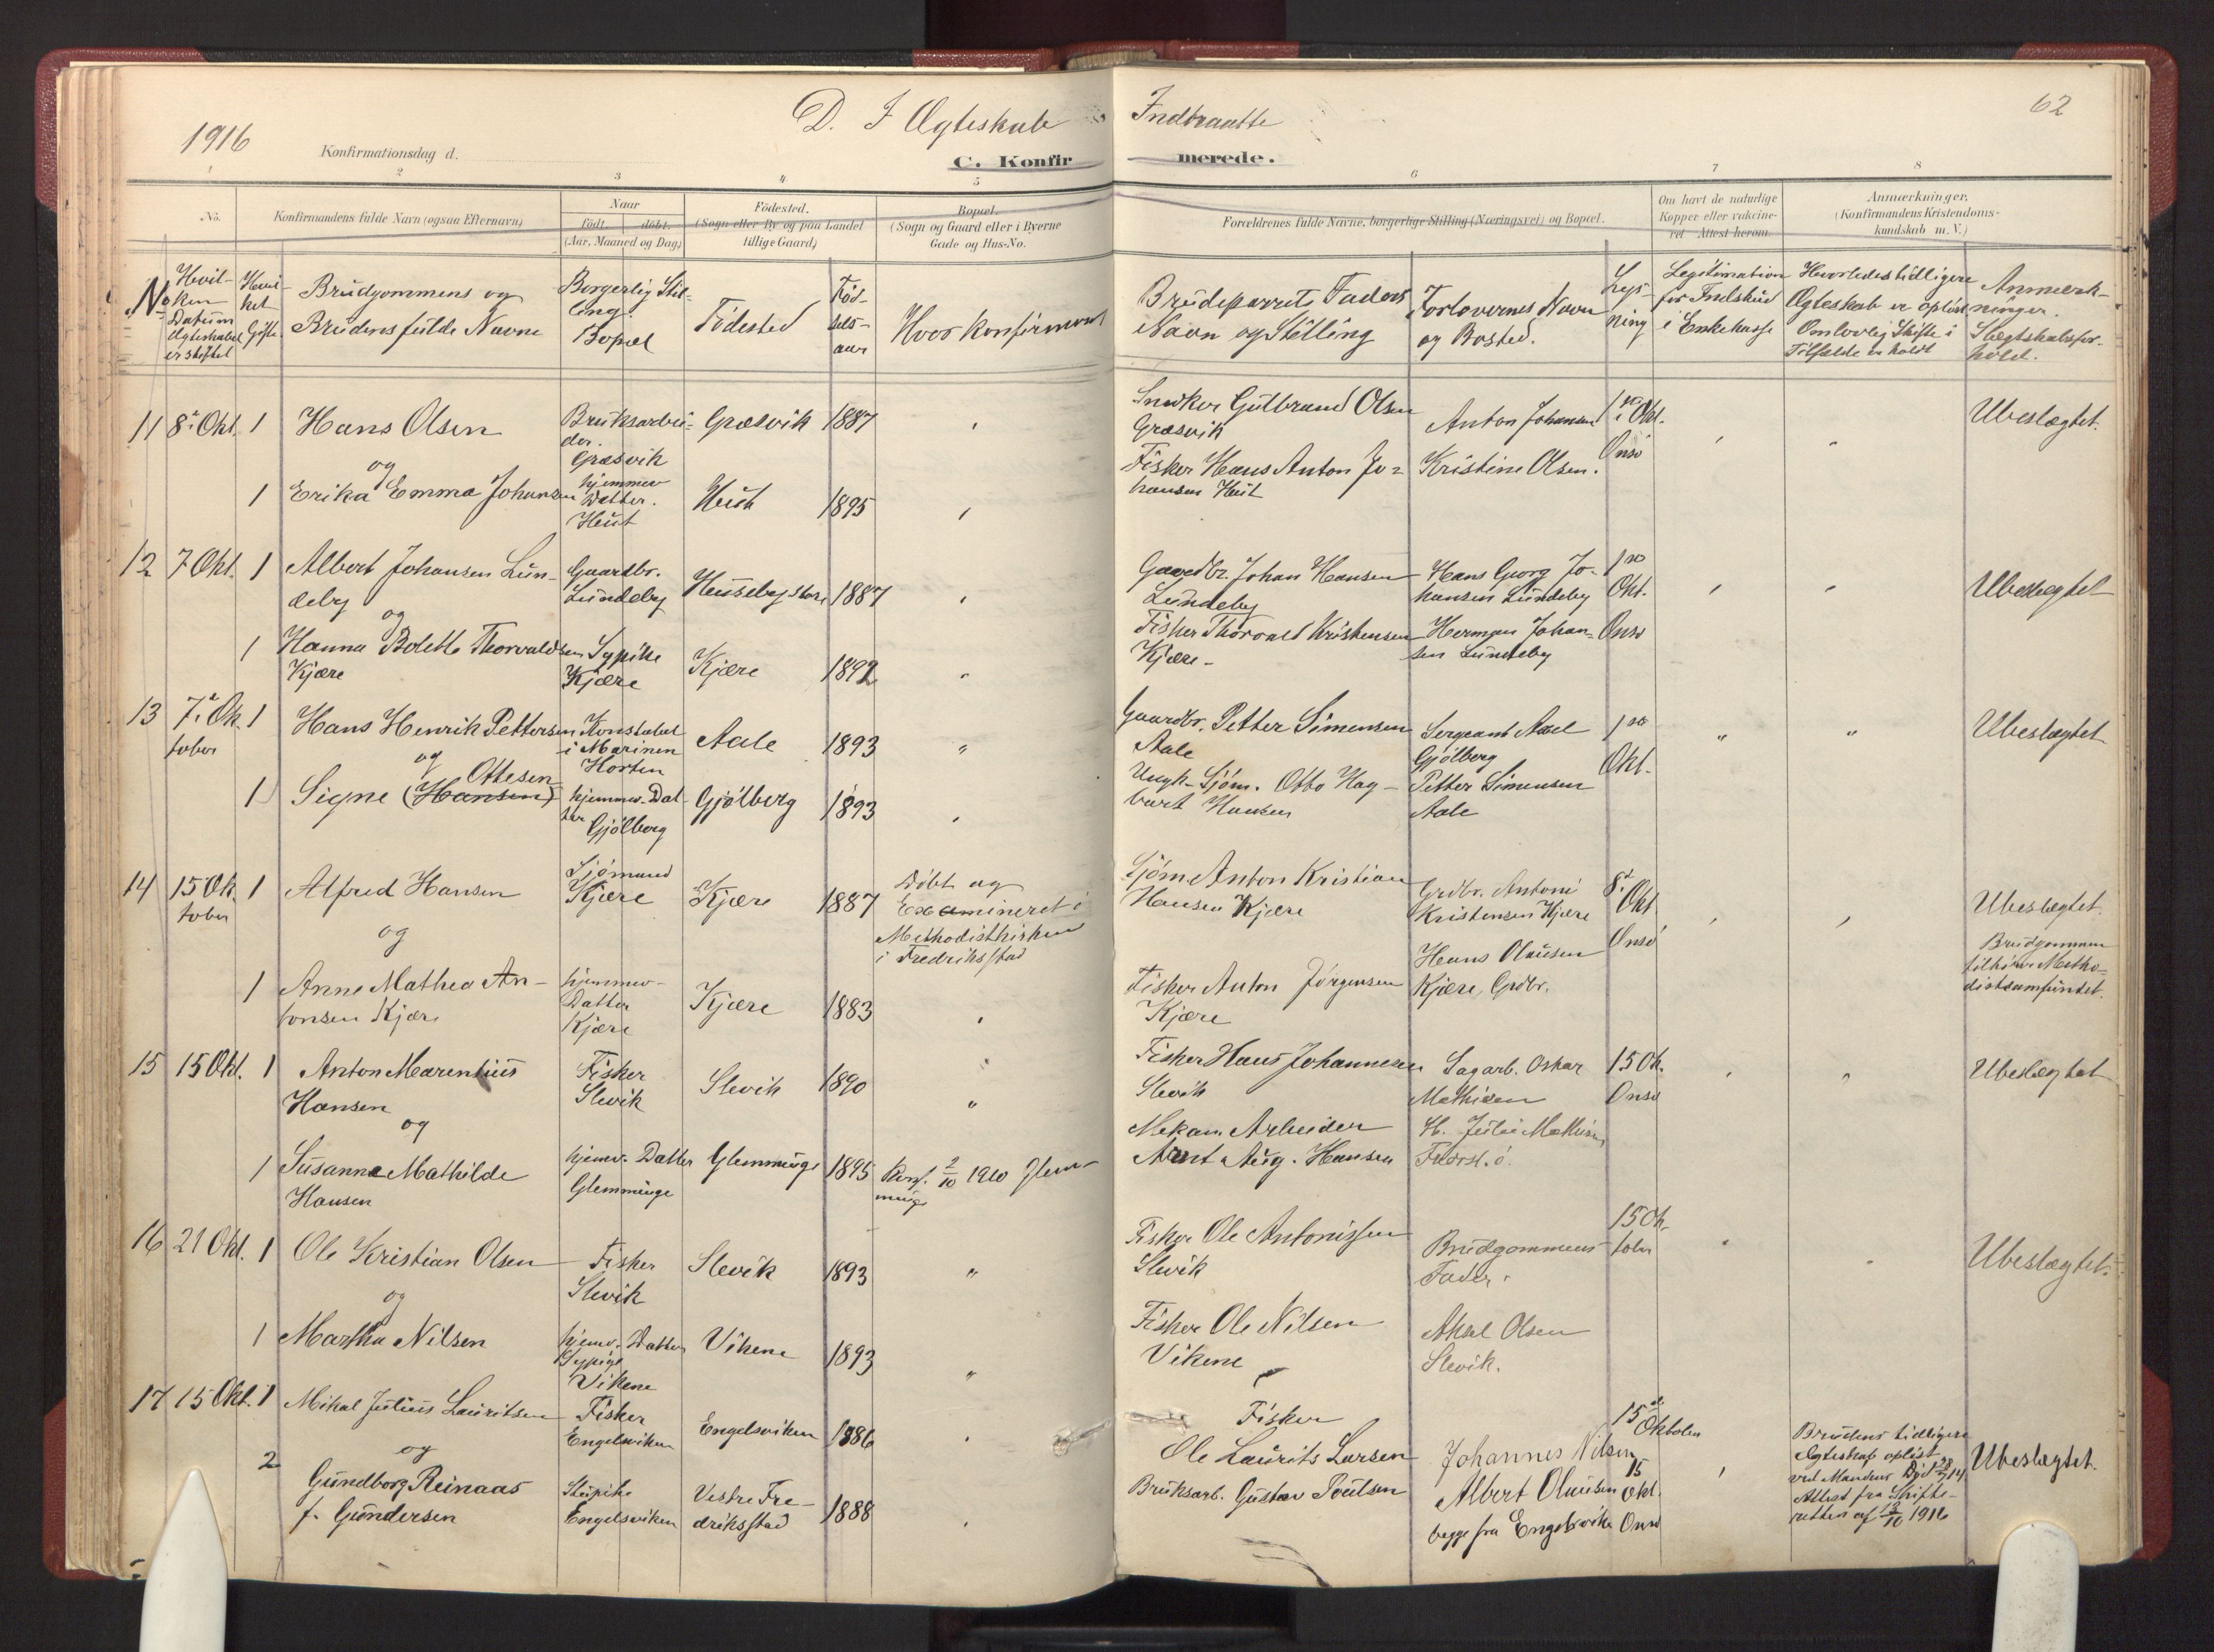 1916
D. I Ægteskab
Indtraatte
62
Konfirmationsdag d.
C. Konfir
merede.
1 2 3 4 5 6 7 8
No. Konfirmandens fulde Navn (ogsaa Efternavn) Naar født. døbt. (Aar, Maaned og Dag) Fødested. (Sogn eller By og paa Landet tillige Gaard) Bopæl. (Sogn og Gaard eller i Byerne Gade og Hus-No.
Forældrenes fulde Navne, borgerlige Stilling (Næringsvei) og Bopæl. Om havt de naturlige Kopper eller vaccineret Attest herom. Anmærkninger. (Konfirmandens Kristendomskundskab m. V.)
No Hvilken Datum Ægteskabet er stiftet
Hvilket Gifte
Brudgommens og
Brudens fulde Navne
Borgerlig Stilling
Bopæl
Fødested
Fødselsaar
Hvor konfirmeret
Brudeparrets Faders
Navn og Stilling
Forlovernes Navn
og Bosted.
Lysning
Legitimation
for Indskud
i Enkekasse
Hvorledes tidligere
Ægteskab er opløst
Om lovlig Skifte i
Tilfælde er holdt
Anmerkninger.
Slegtskabsforhold.
11 8de Okt. 1 Hans Olsen
Bruksarbeider.
Græsvik
Græsvik 1887
Snedker Gulbrand Olsen
Græsvik
Anton Johansen
1ste Okt.
Onsø
Ubeslægtet.
og
1 Erika Emma Johansen
hjemmev
Datter.
Huth
1895
Fisker Hans Anton Johansen
Kristine Olsen.
12 7 Okt. 1 Albert Johansen Lundeby
Gaardbr.
Lundeby
1887
Gaardbr. Johan Hansen
Lundeby
Hans Georg Johansen Lundeby
1ste
Okt.
Onsø
Ubeslegtet
og
1 Hanna Bolette Thorvaldsen
Kjære
Sypike
Kjære
Kjære 1892
Fisker Thorvald Kristensen
Kjære
Herman Johansen Lundeby
13 7de Oktober 1 Hans Henrik Pettersen
Konstabel
i Marinen
Horten
Aale 1893
Gaardbr. Petter Simensen
Aale
Sergeant Axel
Gjølberg
1ste
Okt.
Ubeslægtet
og
Ottesen
1 Signe (Hansen)
hjemmev. Datter
Gjølberg
Gjølberg 1893
Ungk. Sjøm. Otto Hagbart Hansen
Petter Simensen
Aale
14 15 Oktober 1 Alfred Hansen
Sjømand
Kjære
Kjære 1887
Døbt og
Examineret i
Methodistkirken
i Fredriksstad
Sjøm. Anton Kristian
Hansen Kjære
Grdbr. Antoni
Kristensen Kjære
8de
Okt.
Onsø
Ubeslegtet.
og
1 Anne Mathea Antonsen Kjære
hjemmev
Datter
Kjære
Kjære 1883
Fisker Anton Jørgensen
Kjære
Hans Olausen
Kjære, Grdbr.
Brudgommen
tilhører Methodistsamfundet.
15 15 Okt. 1 Anton Marentius
Hansen
Fisker
Slevik
Slevik 1890
Fisker Hans Johannesen
Slevik
Sagarb. Oskar
Mathisen
15 Ok.
Onsø
Ubeslægtet
og
1 Susanne Mathilde
Hansen
hjemv. Datter
Glemminge
Glemminge 1895
Konf. 2/10 1910 Glemminge
Mekan. Arbeider
Arnt Aug. Hansen
16 21 Okt. 1 Ole Kristian Olsen
Fisker
Slevik
Slevik 1893
Fisker Ole Antonissen
Slevik
Brudgommens
Fader.
15 Oktober
Ubeslægtet.
og
1 Martha Nilsen
hjemv. Datter
Sypige
Vikene
Vikene 1893
Fisker Ole Nilsen
Vikene
Aksel Olsen
Slevik.
17 15 Okt. 1 Mikal Julius Lauritsen
Fisker
Engelsviken
Engelsviken 1886
Fisker
Ole Laurits Larsen
Johannes Nilsen
15de Oktober
Brudens tidligere
Ægteskap opløst
ved Mandens Død
Attest fra Skifteretten af 13/10 1916
Ubeslægtet.
og
2 Gundborg Reinaas
f. Gundersen
Engelsviken
Vestre Fredriksstad 1888
Bruksarb. Gustav Poulsen
Albert Olausen
begge fra Engelsviken
15
Okt.
Onsø